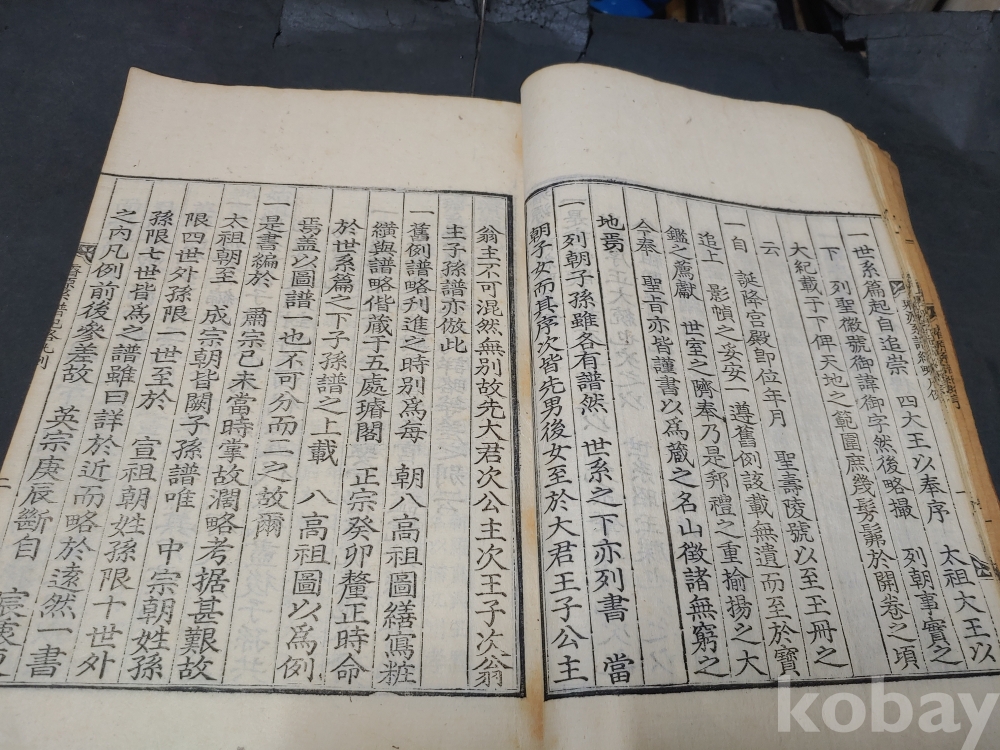 一世系篇起自追崇 四大王以奉序 太祖大王以
下 列聖徽號御諱御字然後略撮 列朝事實之
大紀載于下俾天地之範圍庶幾髣髴於開卷之頃
云
一自 誕降宮殿卽位年月 聖壽陵號以至玉冊之
追上 影幀之妥安一遵舊例該載無遺而至於寶
鑑之薦獻 世室之隮奉乃是邦禮之重揄揚之大
今奉 聖旨亦皆謹書以爲藏之名山徵諸無窮之
地焉
一列朝子孫雖各有譜然以 世系之下亦列書 當
朝子女而其序次皆先男後女至於大君王子公主
翁主不可混然無別故先大君次公主次王子次翁
主子孫譜亦倣此
一舊例譜略刊進之時別爲每 朝八高祖圖繕寫粧
䌙與譜略偕藏于五處璿閣 正宗癸卯釐正時命
於世系篇之下子孫譜之上載 八高祖圖以爲例
焉盖以圖譜一也不可分而二之故爾
一是書編於 肅宗己未當時掌故濶略考据甚艱故
太祖朝至 成宗朝皆闕子孫譜唯 中宗朝姓孫
限四世外孫限二世至於 宣祖朝姓孫限十世外
孫限七世皆爲之譜雖曰詳於近而略於遠然一書
之內凡例前後參差故 英宗庚辰斷自
kobay